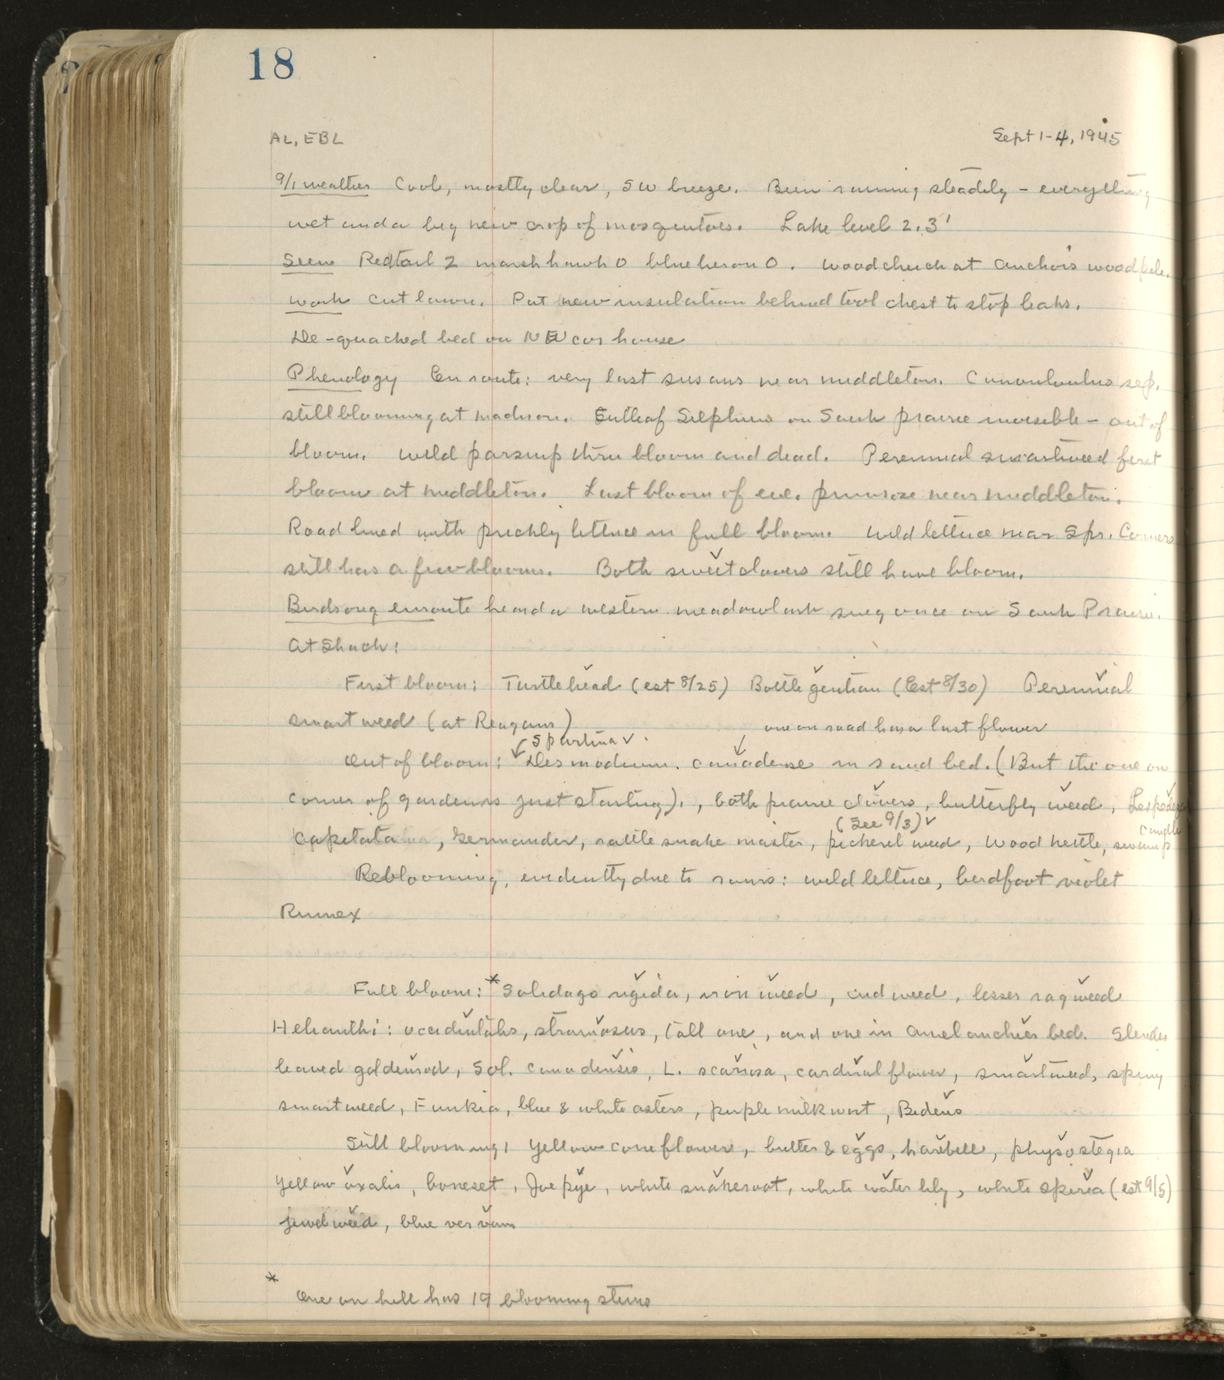 18
AL, EBL Sept 1-4, 1945
9/1 weather Cool, mostly clear, SW breeze. Been raining steadily - everything
wet and a big new crop of mosquitoes. Lake level 2.3'
Seen Redtail 2 marsh hawk 0 blue heron 0. Woodchuck at Anchor's woodpile.
Work Cut lawn. Put new insulation behind tool chest to stop leaks.
De-quacked bed on NE cor house
Phenology En route: very last susans near Middleton. Convolvulus sep.
still blooming at Madison. Cutleaf Silphium on Sauk prairie invisible - out of
bloom. Wild parsnip thru bloom and dead. Perennial smartweed first
bloom at Middleton. Last bloom of eve. primrose near Middleton.
Road lined with prickly lettuce in full bloom. Wild lettuce near Spr. Corners
still has a few blooms. Both sweet clovers still have bloom.
Birdsong enroute heard a western meadowlark sing once on Sauk Prairie.
At Shack:
First bloom: Turtlehead (est 8/25) Bottle gentian (Est 8/30) Perennial
smartweed (at Reagans) one on road has a last flower
Spartina
Out of bloom: Desmodium canadense in sand bed. (But the one on
corner of gardens just starting)., both prairie clovers, butterfly weed, Lespedeza
(See 9/3)
capitata, germander, rattlesnake master, pickerel weed, wood nettle, swamp
Reblooming, evidently due to rains: wild lettuce, birdfoot violet
Rumex
Full bloom: * Solidago rigida, iron weed, lesser ragweed
Helianthi: occidentalis, strumosus, (all one, and one in Amelanchier bed. Slender
leaved goldenrod, Sol. canadensis, L. scariosa, cardinal flower, smartweed, spiny
smartweed, Funkia, blue & white asters, purple milkwort, Bidens
Still blooming: yellow coneflower, butter & eggs, harebell, physostegia
Yellow oxalis, boneset, Joe pye, white snakeroot, white water lily, white spirea (est 9/5)
jewelweed, blue vervain
* One on hill has 19 blooming stems